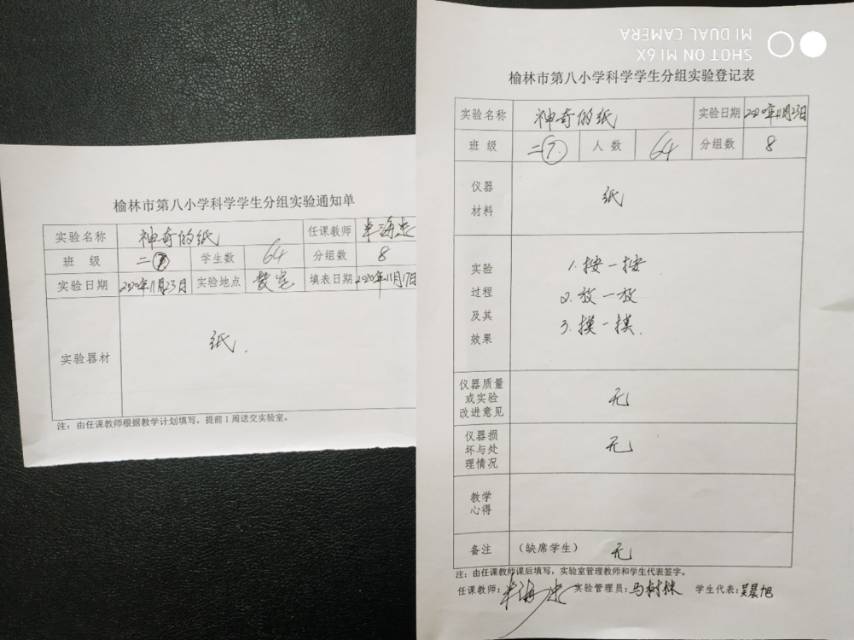 榆林市第八小学科学学生分组实验通知单
实验名称 神奇的纸 任课教师
班级 二⑦ 学生数 64 分组数 8
实验日期 2020年11月23日 实验地点 教室 填表日期 2020年11月17日
实验器材 纸.
注:由任课教师根据教学计划填写,提前1周送交实验室。
SHOT ON MI 6X
MI DUAL CAMERA
榆林市第八小学科学学生分组实验登记表
实验名称 神奇的纸 实验日期 2020年11月23日
班级 二⑦ 人数 64 分组数 8
仪器材料 纸
实验过程及其效果 1.按一按
2.放一放
3.摸一摸.
仪器质量或实验改进意见 无
仪器损坏与处理情况 无
教学心得
备注 (缺席学生) 无
注:由任课教师课后填写,实验室管理教师和学生代表签字。
任课教师: 实验管理员:马树林 学生代表:吴晨旭